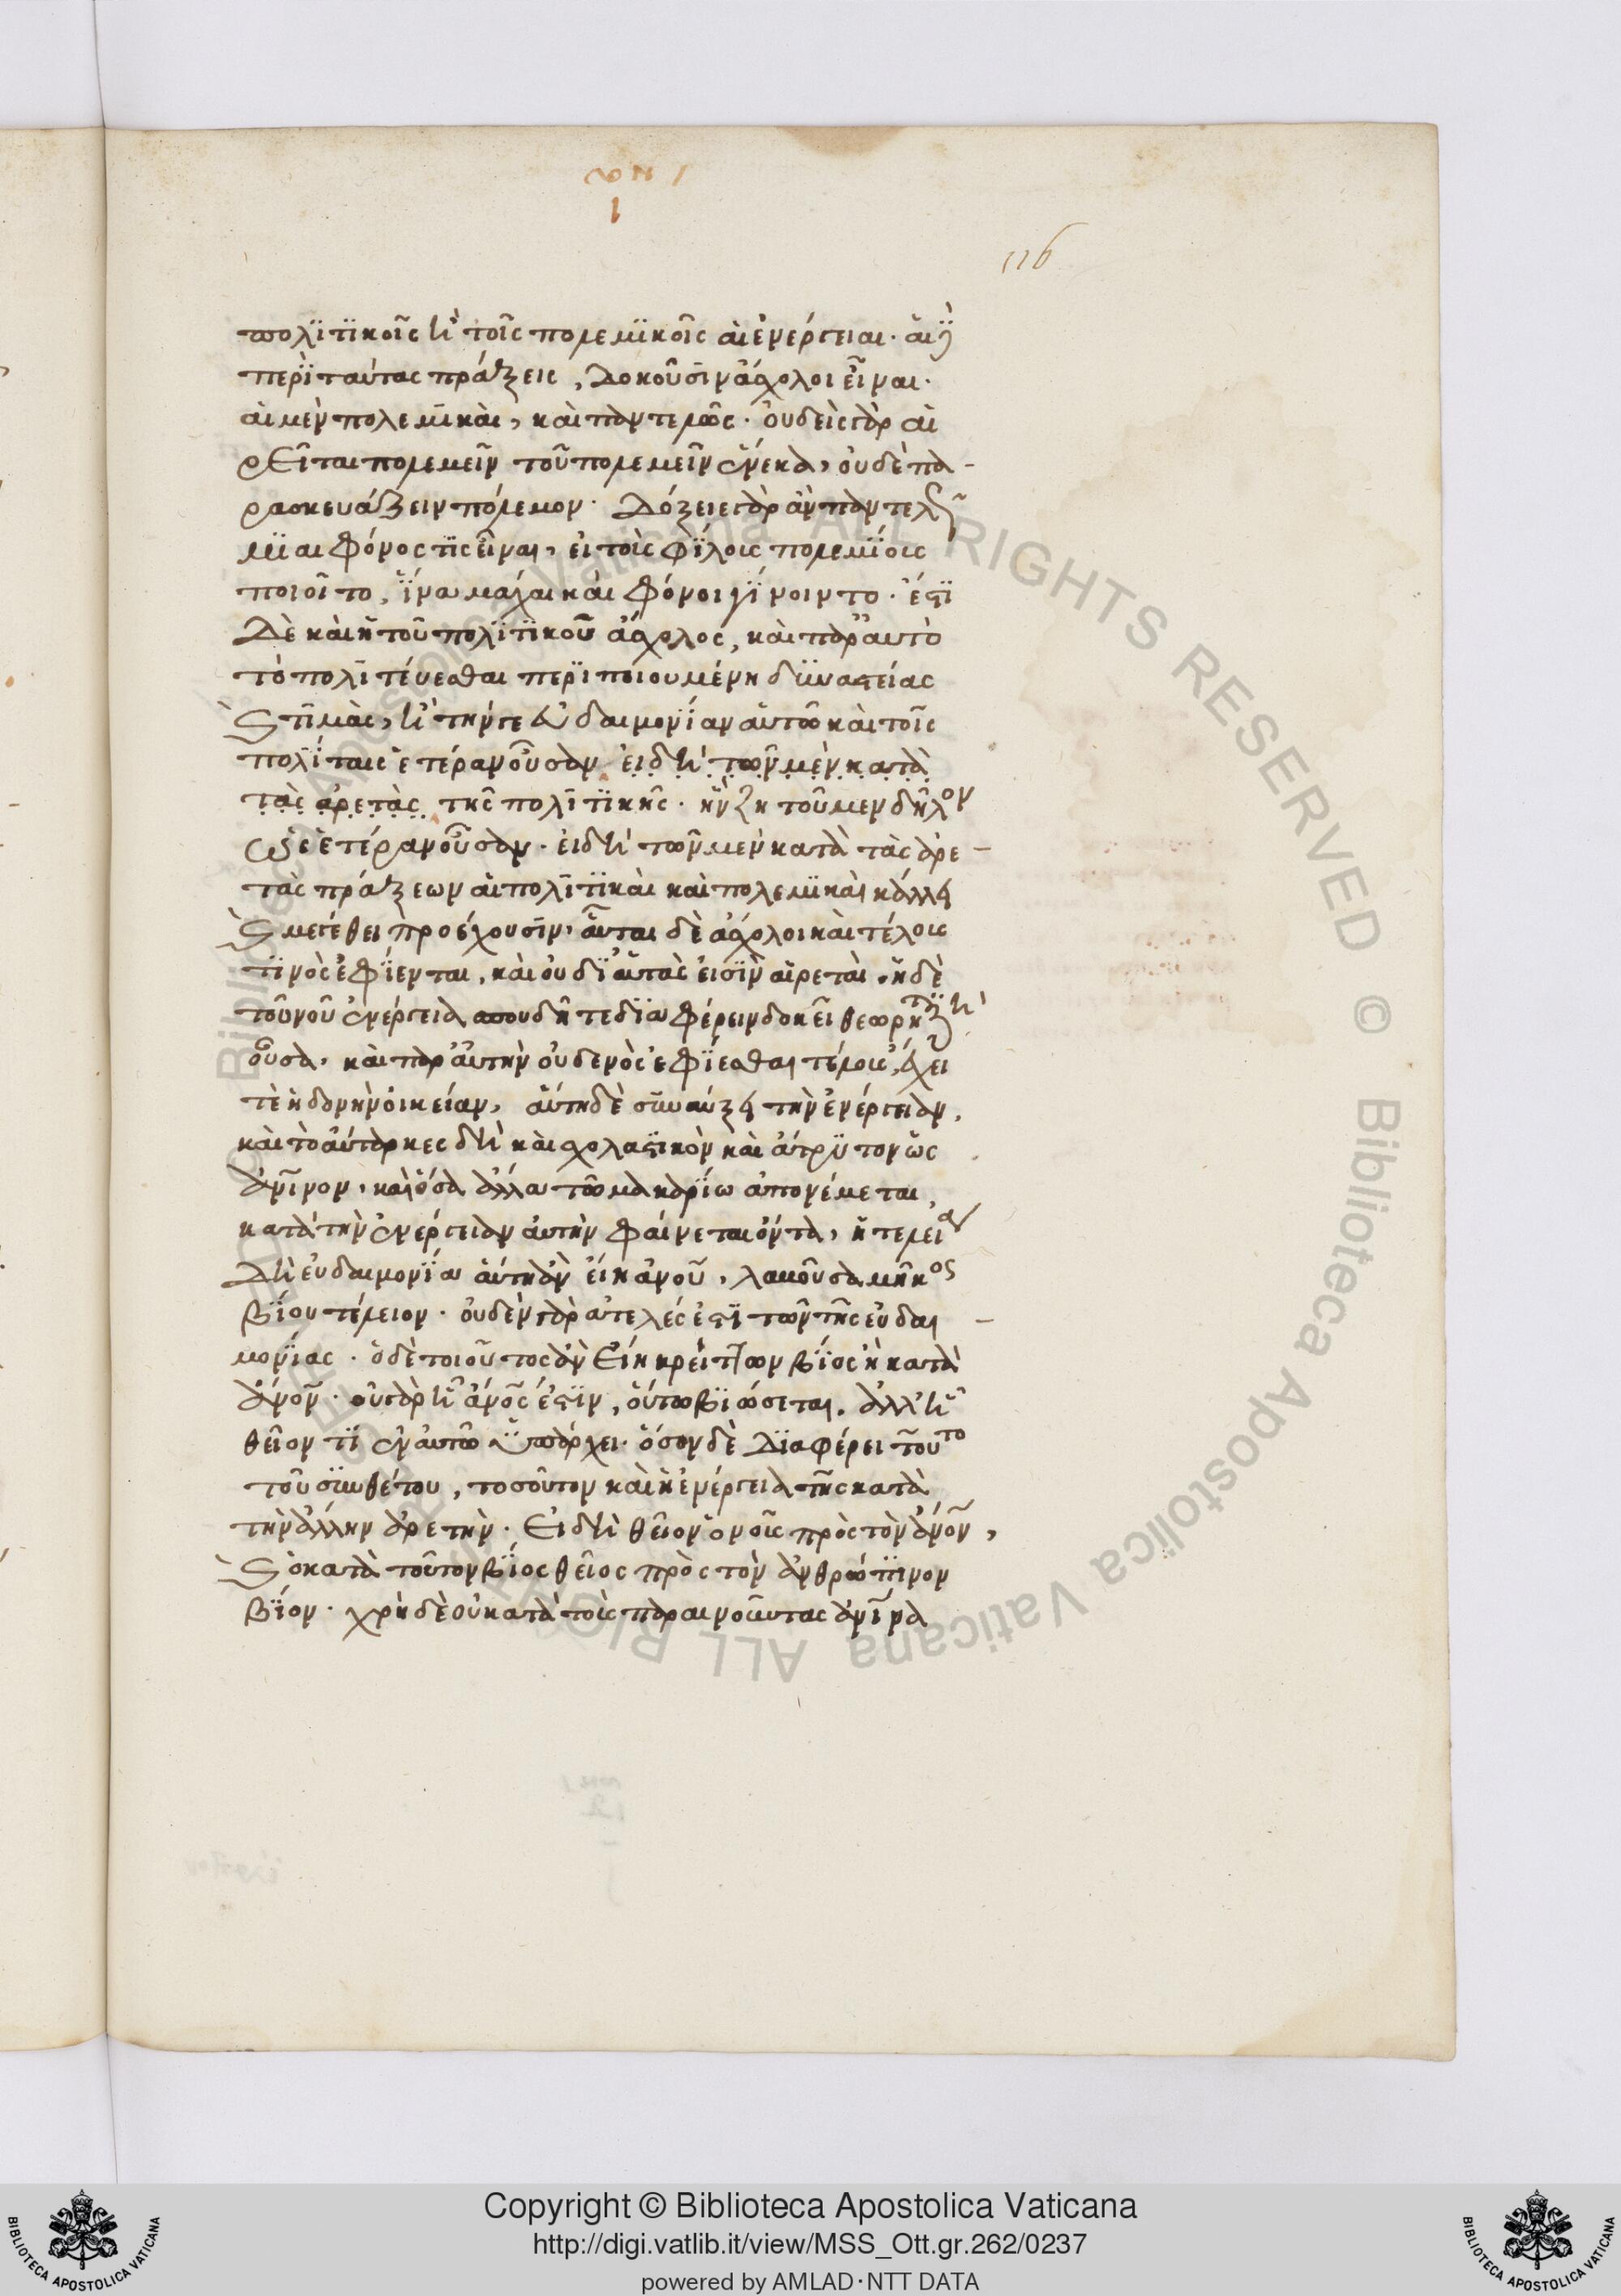 116
πολιτικοῖς ἢ τοῖς πολεμικοῖς αἱ ἐνέργειαι· αἱ δὲ
περὶ ταύτας πράξεις, δοκοῦσιν ἄσχολοι εἶναι·
αἱ μὲν πολεμικαὶ, καὶ παντελῶς· οὐδεὶς γὰρ αἱ
ρεῖται πολεμεῖν τοῦ πολεμεῖν ἕνεκα, οὐδὲ πα-
ρασκευάζειν πόλεμον· δόξειε γὰρ ἂν παντελῶς
μιαιφόνος τις εἶναι, εἰ τοὺς φίλους πολεμίους
ποιοῖτο, ἵνα μάχαι καὶ φόνοι γίνοιντο· ἔστι
δὲ καὶ ἡ τοῦ πολιτικοῦ ἄσχολος, καὶ παρ' αὐτὸ
τὸ πολιτεύεσθαι περιποιουμένη δυναστείας
καὶ τιμὰς, ἢ τήν γε εὐδαιμονίαν αὐτῷ καὶ τοῖς
πολίταις ἑτέραν οὖσαν εἰ δὴ τῶν μὲν κατὰ
τὰς ἀρετὰς τῆς πολιτικῆς· ἣν ζητοῦμεν δῆλον
ὡς ἑτέραν οὖσαν· εἰ δὴ τῶν μὲν κατὰ τὰς ἀρε-
τὰς πράξεων αἱ πολιτικαὶ καὶ πολεμικαὶ κάλλει
καὶ μεγέθει προέχουσιν· αὗται δὲ ἄσχολοι καὶ τέλους
τινὸς ἐφίενται, καὶ οὐ δι' αὑτὰς εἰσὶν αἱρεταὶ· ἡ δὲ
τοῦ νοῦ ἐνέργεια σπουδῇ τε διαφέρειν δοκεῖ θεωρητικὴ
οὖσα, καὶ παρ' αὑτὴν οὐδενὸς ἐφίεσθαι τέλους, ἔχει
τε ἡδονὴν οἰκείαν, αὕτη δὲ συναύξει τὴν ἐνέργειαν,
καὶ τὸ αὔταρκες δὴ καὶ σχολαστικὸν καὶ ἄτρυτον ὡς
ἀνῖνον, καὶ ὅσα ἄλλα τῷ μακαρίω ἀπονέμεται,
κατὰ τὴν ἐνέργειαν αὐτὴν φαίνεται ὄντα, ἡ τελεία
δὴ εὐδαιμονία αὕτη ἂν εἴη ἀνοῦ, λαβοῦσα μῆκος
βίου τέλειον· οὐδὲν γὰρ ἀτελές ἐστι τῶν τῆς εὐδαι-
μονίας· ὁ δὲ τοιοῦτος ἂν εἴη κρείττων βίος ἢ κατὰ
ἄνον· οὐ γὰρ ᾗ ἄνος ἐστιν, οὕτω βιώσεται. ἀλλ' ᾗ
θεῖόν τι ἐν αὐτῷ ὑπάρχει· ὅσον δὲ διαφέρει τοῦτο
τοῦ συνθέτου, τοσοῦτον καὶ ἡ ἐνέργεια τῆς κατὰ
τὴν ἄλλην ἀρετὴν· εἰ δὴ θεῖον ὁ νοῦς πρὸς τὸν ἄνον,
καὶ ὁ κατὰ τοῦτον βίος θεῖος πρὸς τὸν ἀνθρώπινον
βίον· χρὴ δὲ οὐ κατὰ τοὺς παραινοῦντας ἀνῖνα
Copyright © Biblioteca Apostolica Vaticana
http://digi.vatlib.it/view/MSS_Ott.gr.262/0237
powered by AMLAD·NTT DATA